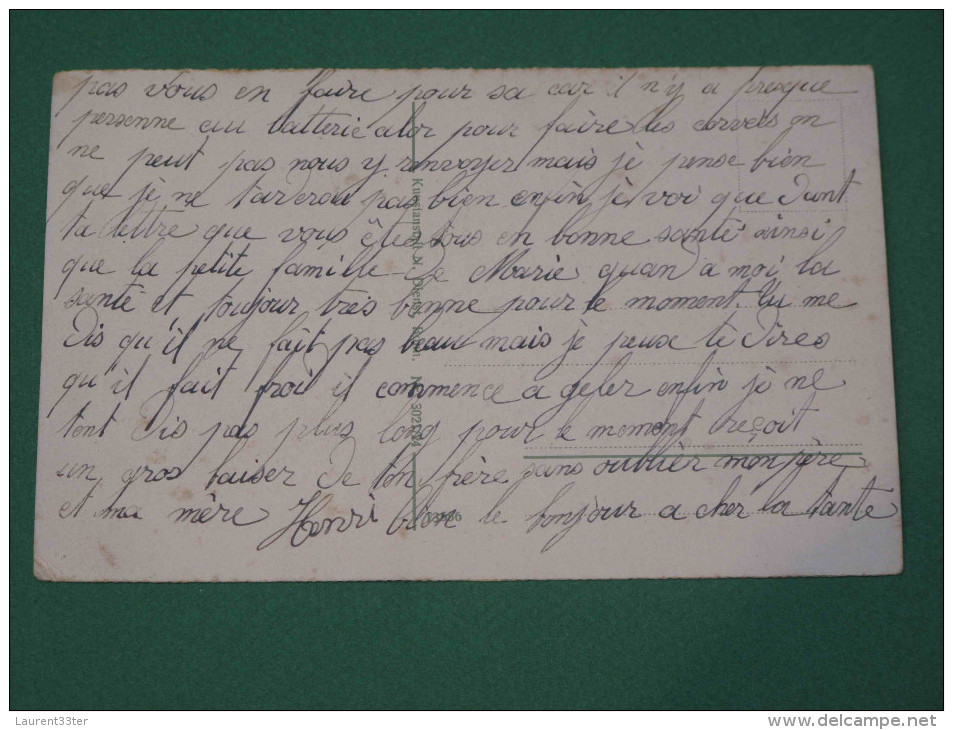 pas vous en faire pour sa car il n'y a presque
personne au batterie alor pour faire les corvées on
ne peut pas nous y renvoyer mais je pense bien
que je ne tarderai pas bien enfin je voi que dant
ta lettre que vous ête tous en bonne santé ainsi
que la petite famille de Marie quan a moi la
santé et toujour très bonne pour le moment. Tu me
dis qu'il ne fait pas beau mais je peuse te dire
qu'il fait froi il commence a geler enfin je ne
tent dis pas plus long pour le moment reçoit
un gros baiser de ton frère sans oublier mon père
et ma mère Henri bien le bonjour a cher la tante
Kunstanstalt
No. 302
Laurent33ter
www.delcampe.net